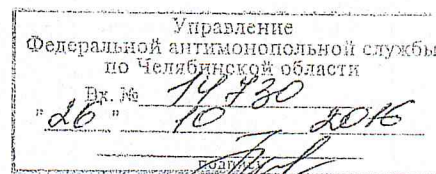 Управление
Федеральной антимонопольной службы
по Челябинской области
Вх. № 14730
"26" 10 2016
подпись